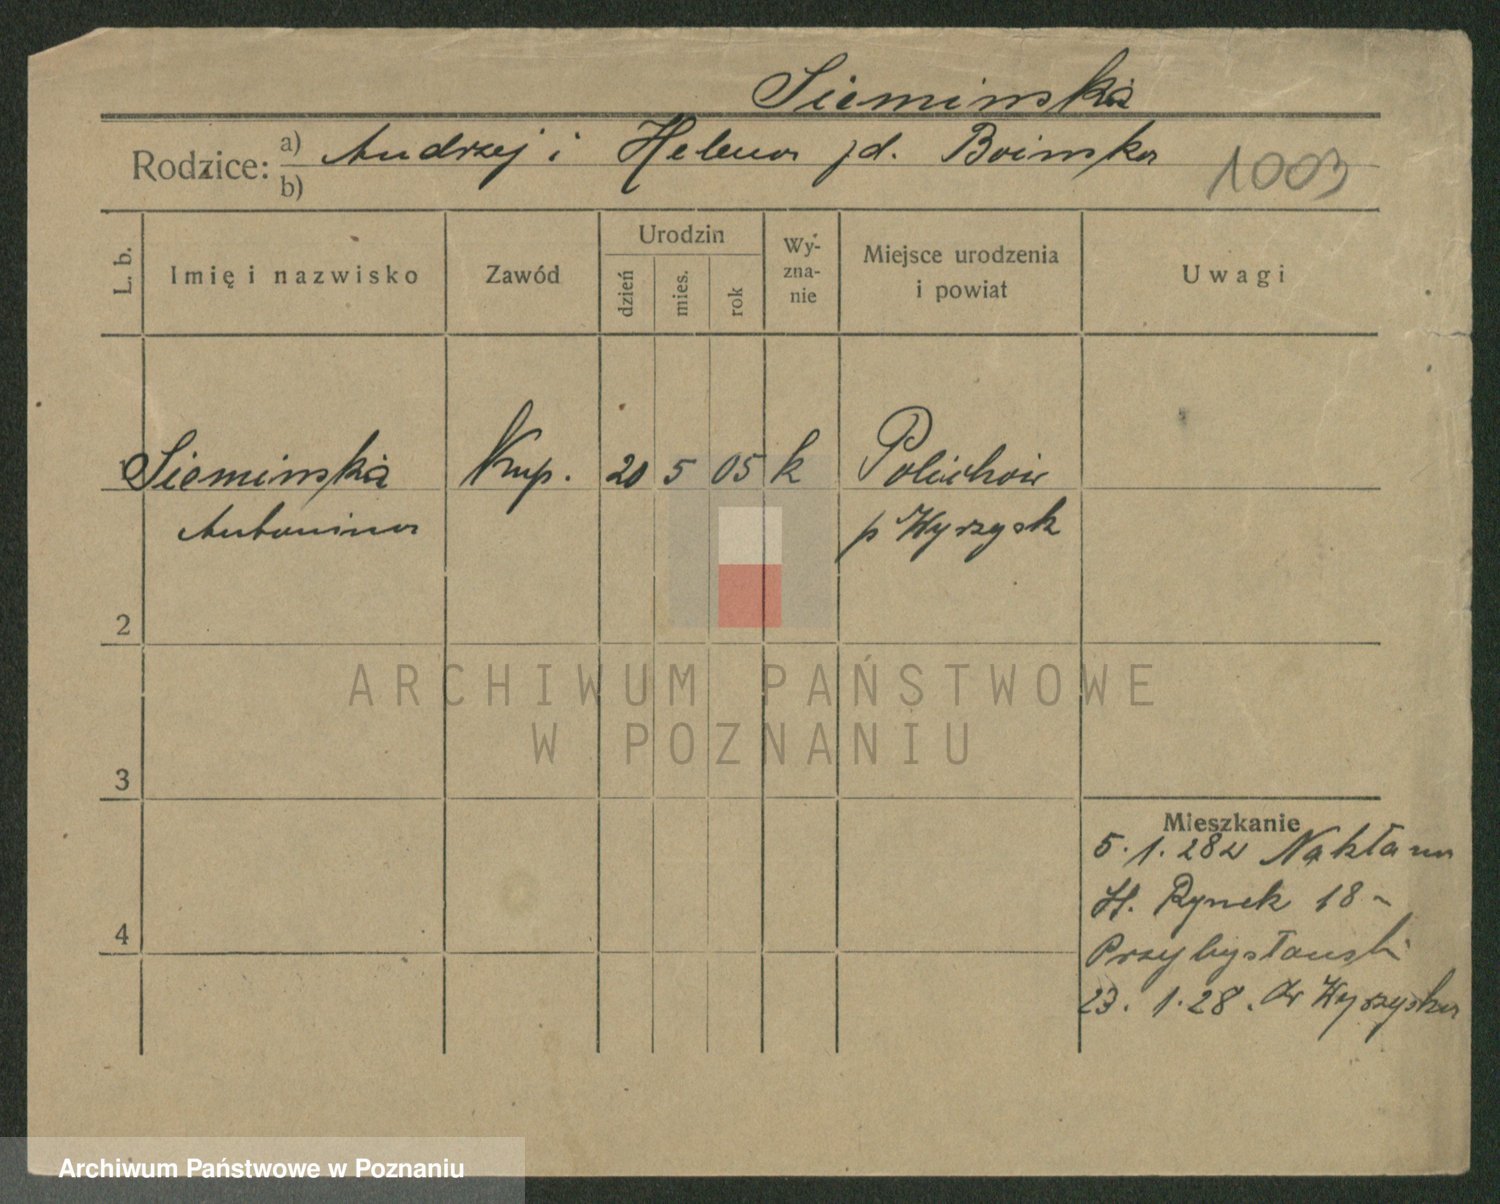 Siemińska
Rodzice: a) Andrzej i Helena jd. Boinska
b)
1003
L. b.
Imię i nazwisko
Zawód
Urodzin
dzień
mies.
rok
Wy-
zna-
nie
Miejsce urodzenia
i powiat
Uwagi
Siemińska
Antonina
Kup.
20
5
05
k
Polichow
p Wyrzysk
2
3
4
ARCHIWUM PAŃSTWOWE
W POZNANIU
Mieszkanie
5.1.28 z Nakła
Rynek 18
Przybysławski
23.1.28. do Wyrzyska
Archiwum Państwowe w Poznaniu